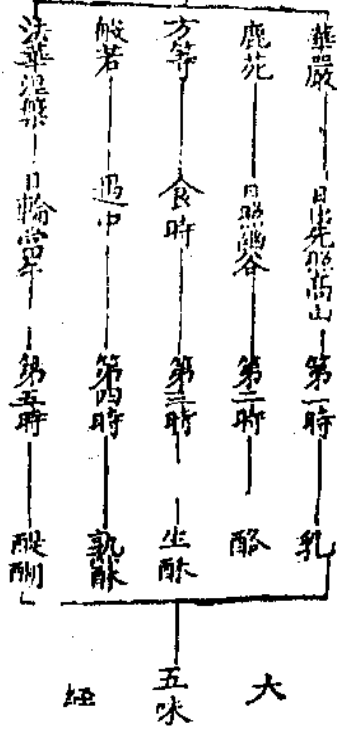 華嚴 日出先照高山 第一時 乳
鹿苑 日照幽谷 第二時 酪
方等 食時 第三時 生酥
般若 中 第四時 孰酥
法華涅槃 日輪當午 第五時 醍醐
大
五味
經